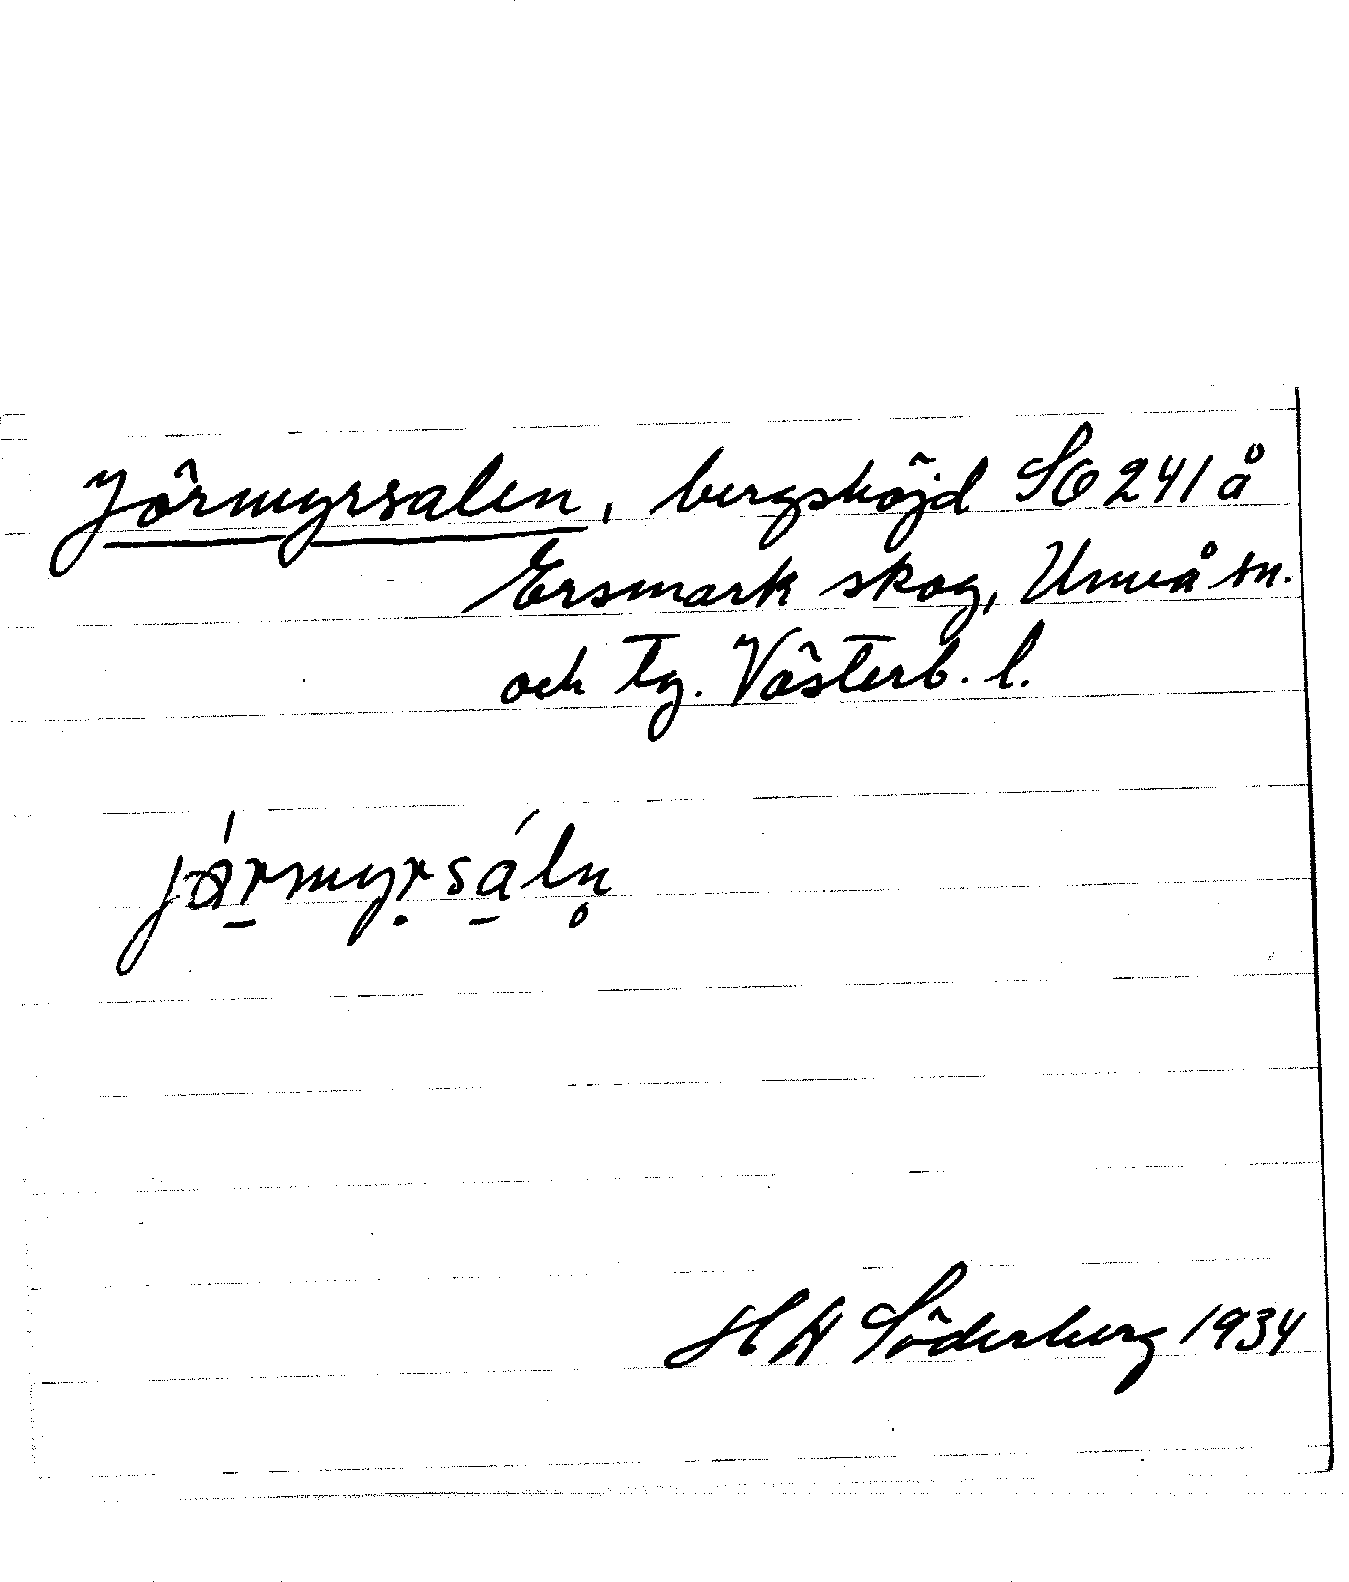 Jörmyrsalen, bergshöjd SO 241 å
Ersmark skog, Umeå sn.
och tg. Västerb. l.
jårmyṛsáln̥
H Söderberg 1934